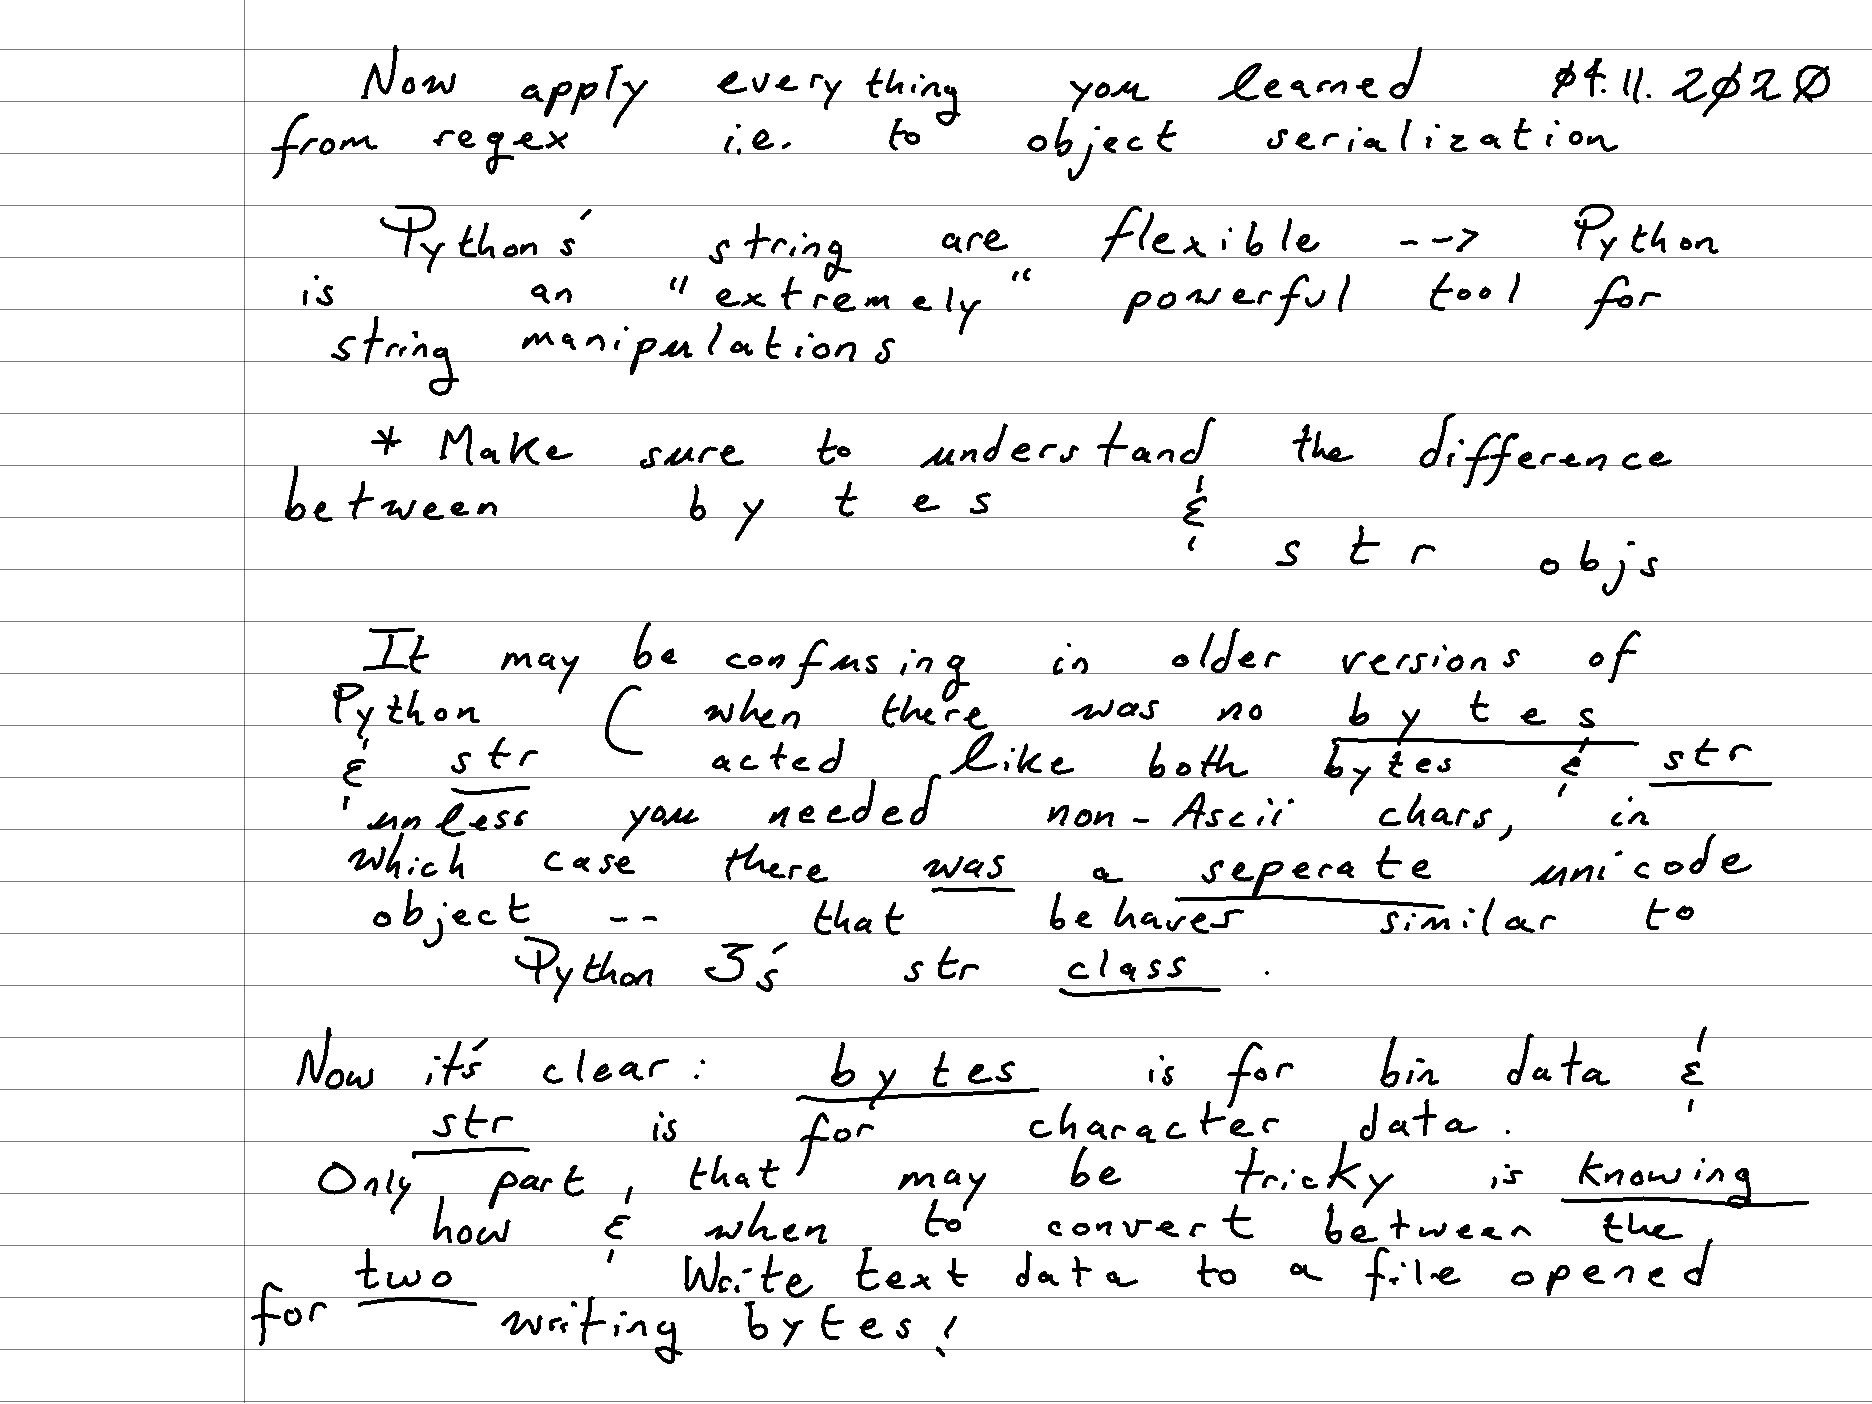 Now apply everything you learned 04.11.2020
from regex i.e. to object serialization
Python's string are flexible --> Python
is an "extremely" powerful tool for
string manipulations
* Make sure to understand the difference
between bytes &
str objs
It may be confusing in older versions of
Python ( when there was no bytes
& str acted like both bytes & str
unless you needed non-Ascii chars, in
which case there was a seperate unicode
object -- that behaves similar to
Python 3's str class .
Now it's clear: bytes is for bin data &
str is for character data.
Only part, that may be tricky is knowing
how & when to convert between the
two Write text data to a file opened
for writing bytes!